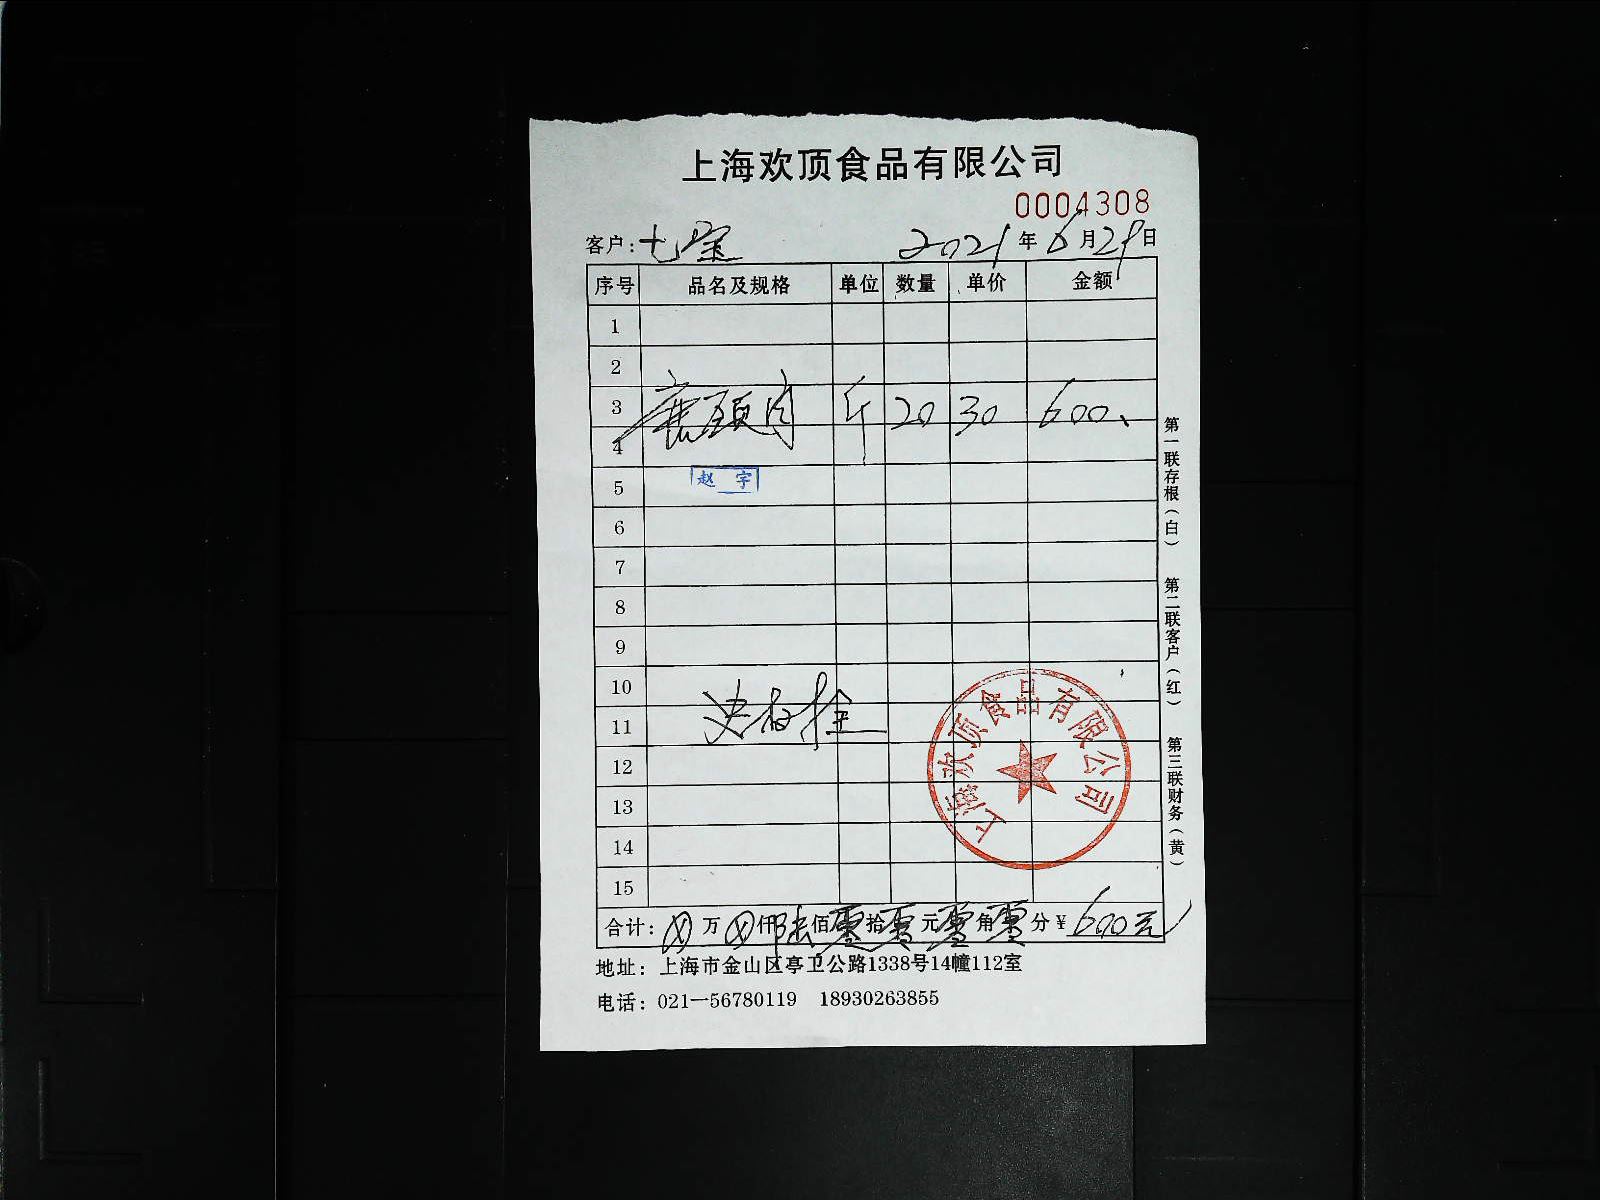 上海欢顶食品有限公司
0004308
客户：七宝 2021年6月29日
序号 品名及规格 单位 数量 单价 金额
1
2
3 鹿颈肉 斤 20 30 600、
4
5 赵宇
6
7
8
9
10
11
12
13
14
15
上海欢顶食品有限公司
合计：⊗万⊗仟陆佰零拾零元零角零分¥600元
地址：上海市金山区亭卫公路1338号14幢112室
电话：021—56780119 18930263855
第一联存根（白） 第二联客户（红） 第三联财务（黄）